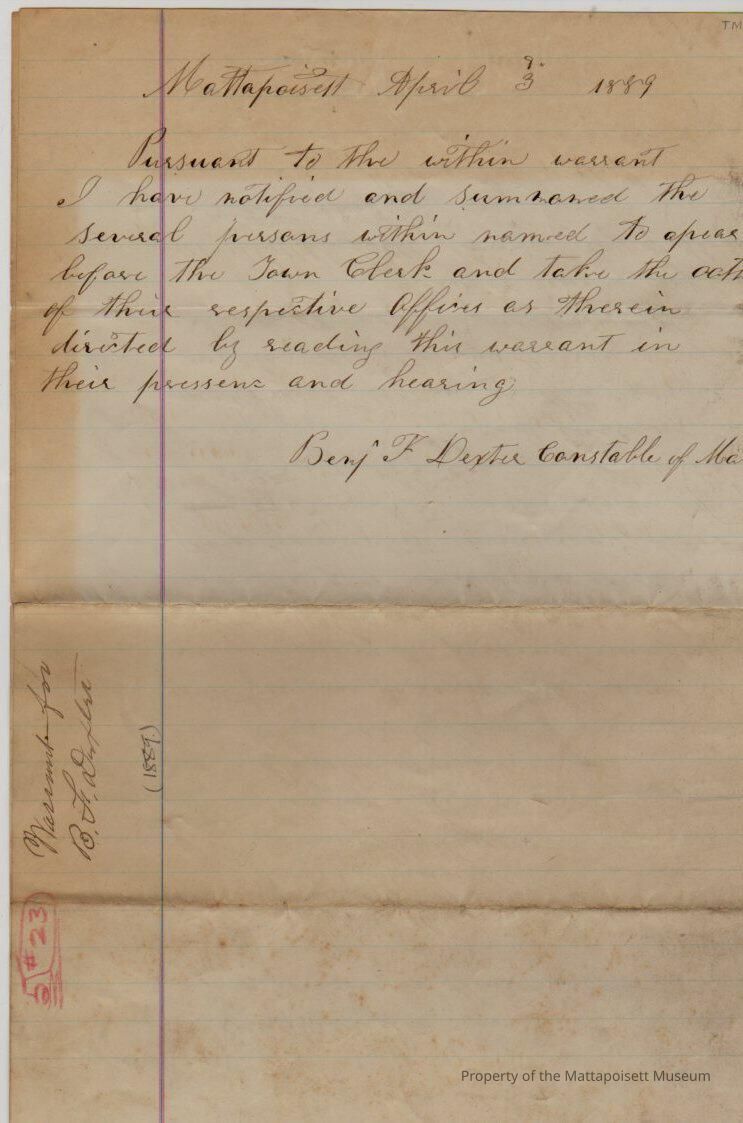 TM
Mattapoisett April 3 1889
Pursuant to the within warrant
I have notified and summoned the
several persons within named to apear
before the Town Clerk and take the oath
of their respective Offices as therein
directed by reading this warrant in
their pressenc and hearing
Benj F Dexter Constable of Ma
Warrant for
B. F. Dexter
(1889)
5 #23
Property of the Mattapoisett Museum